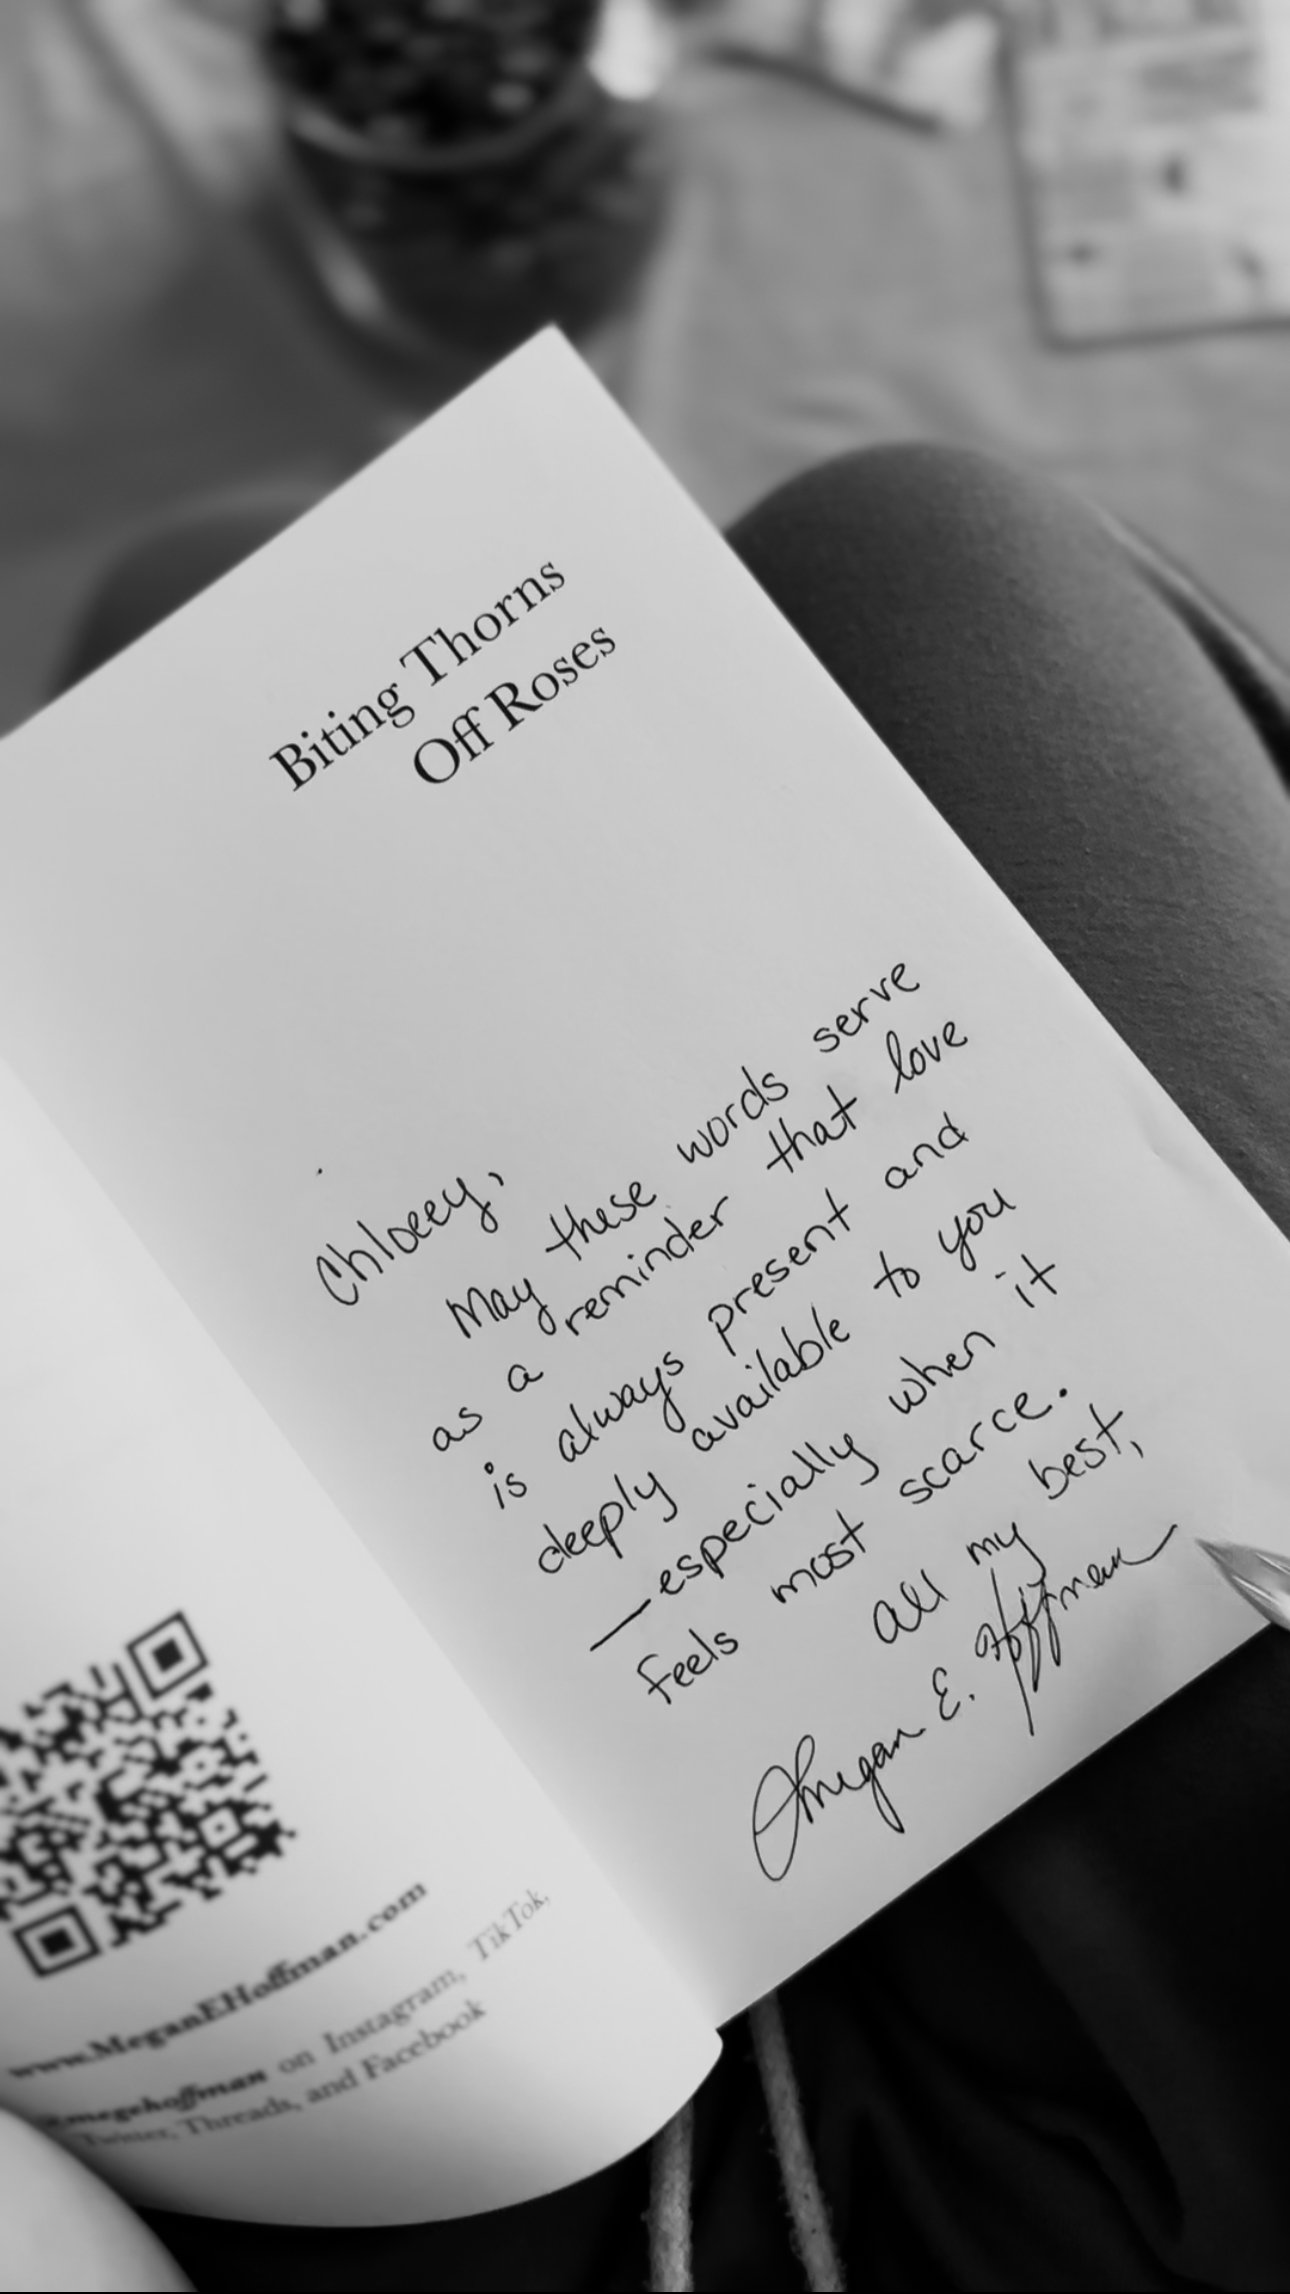 Biting Thorns
Off Roses
Chloeey,
May these words serve
as a reminder that love
is always present and
deeply available to you
—especially when it
feels most scarce.
All my best,
Megan E. Hoffman
www.MeganEHoffman.com
@megehoffman on Instagram, TikTok,
Twitter, Threads, and Facebook